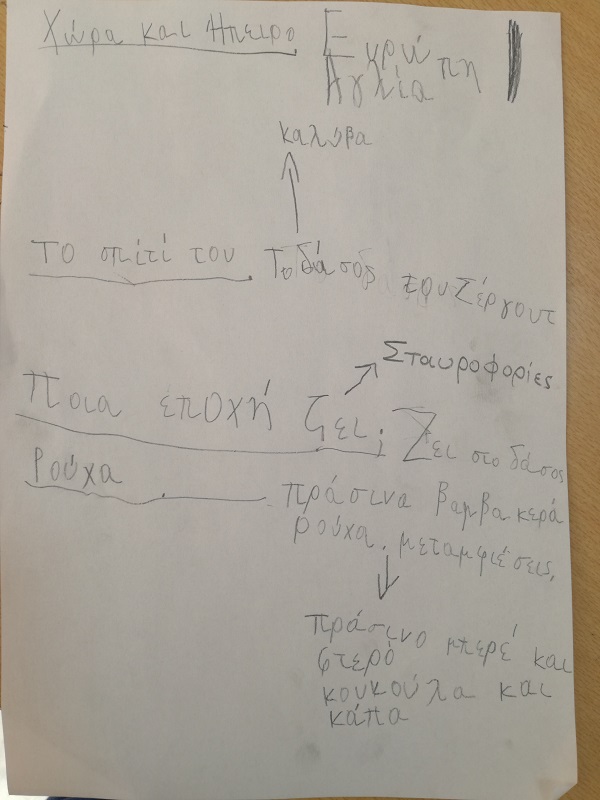 Χώρα και Ηπειρο Ευρώπη
Αγλία
καλύβα
Το σπίτί του Το δάσος του Σέργουτ
Σταυροφορίες
Ποια έποχή ζει; Ζει στο δάσος
Ρούχα πράσινα βαμβακερά
ρούχα. μεταμφιέσεις,
πράσινο μπερέ και
φτερό
κούκούλα και
κάπα